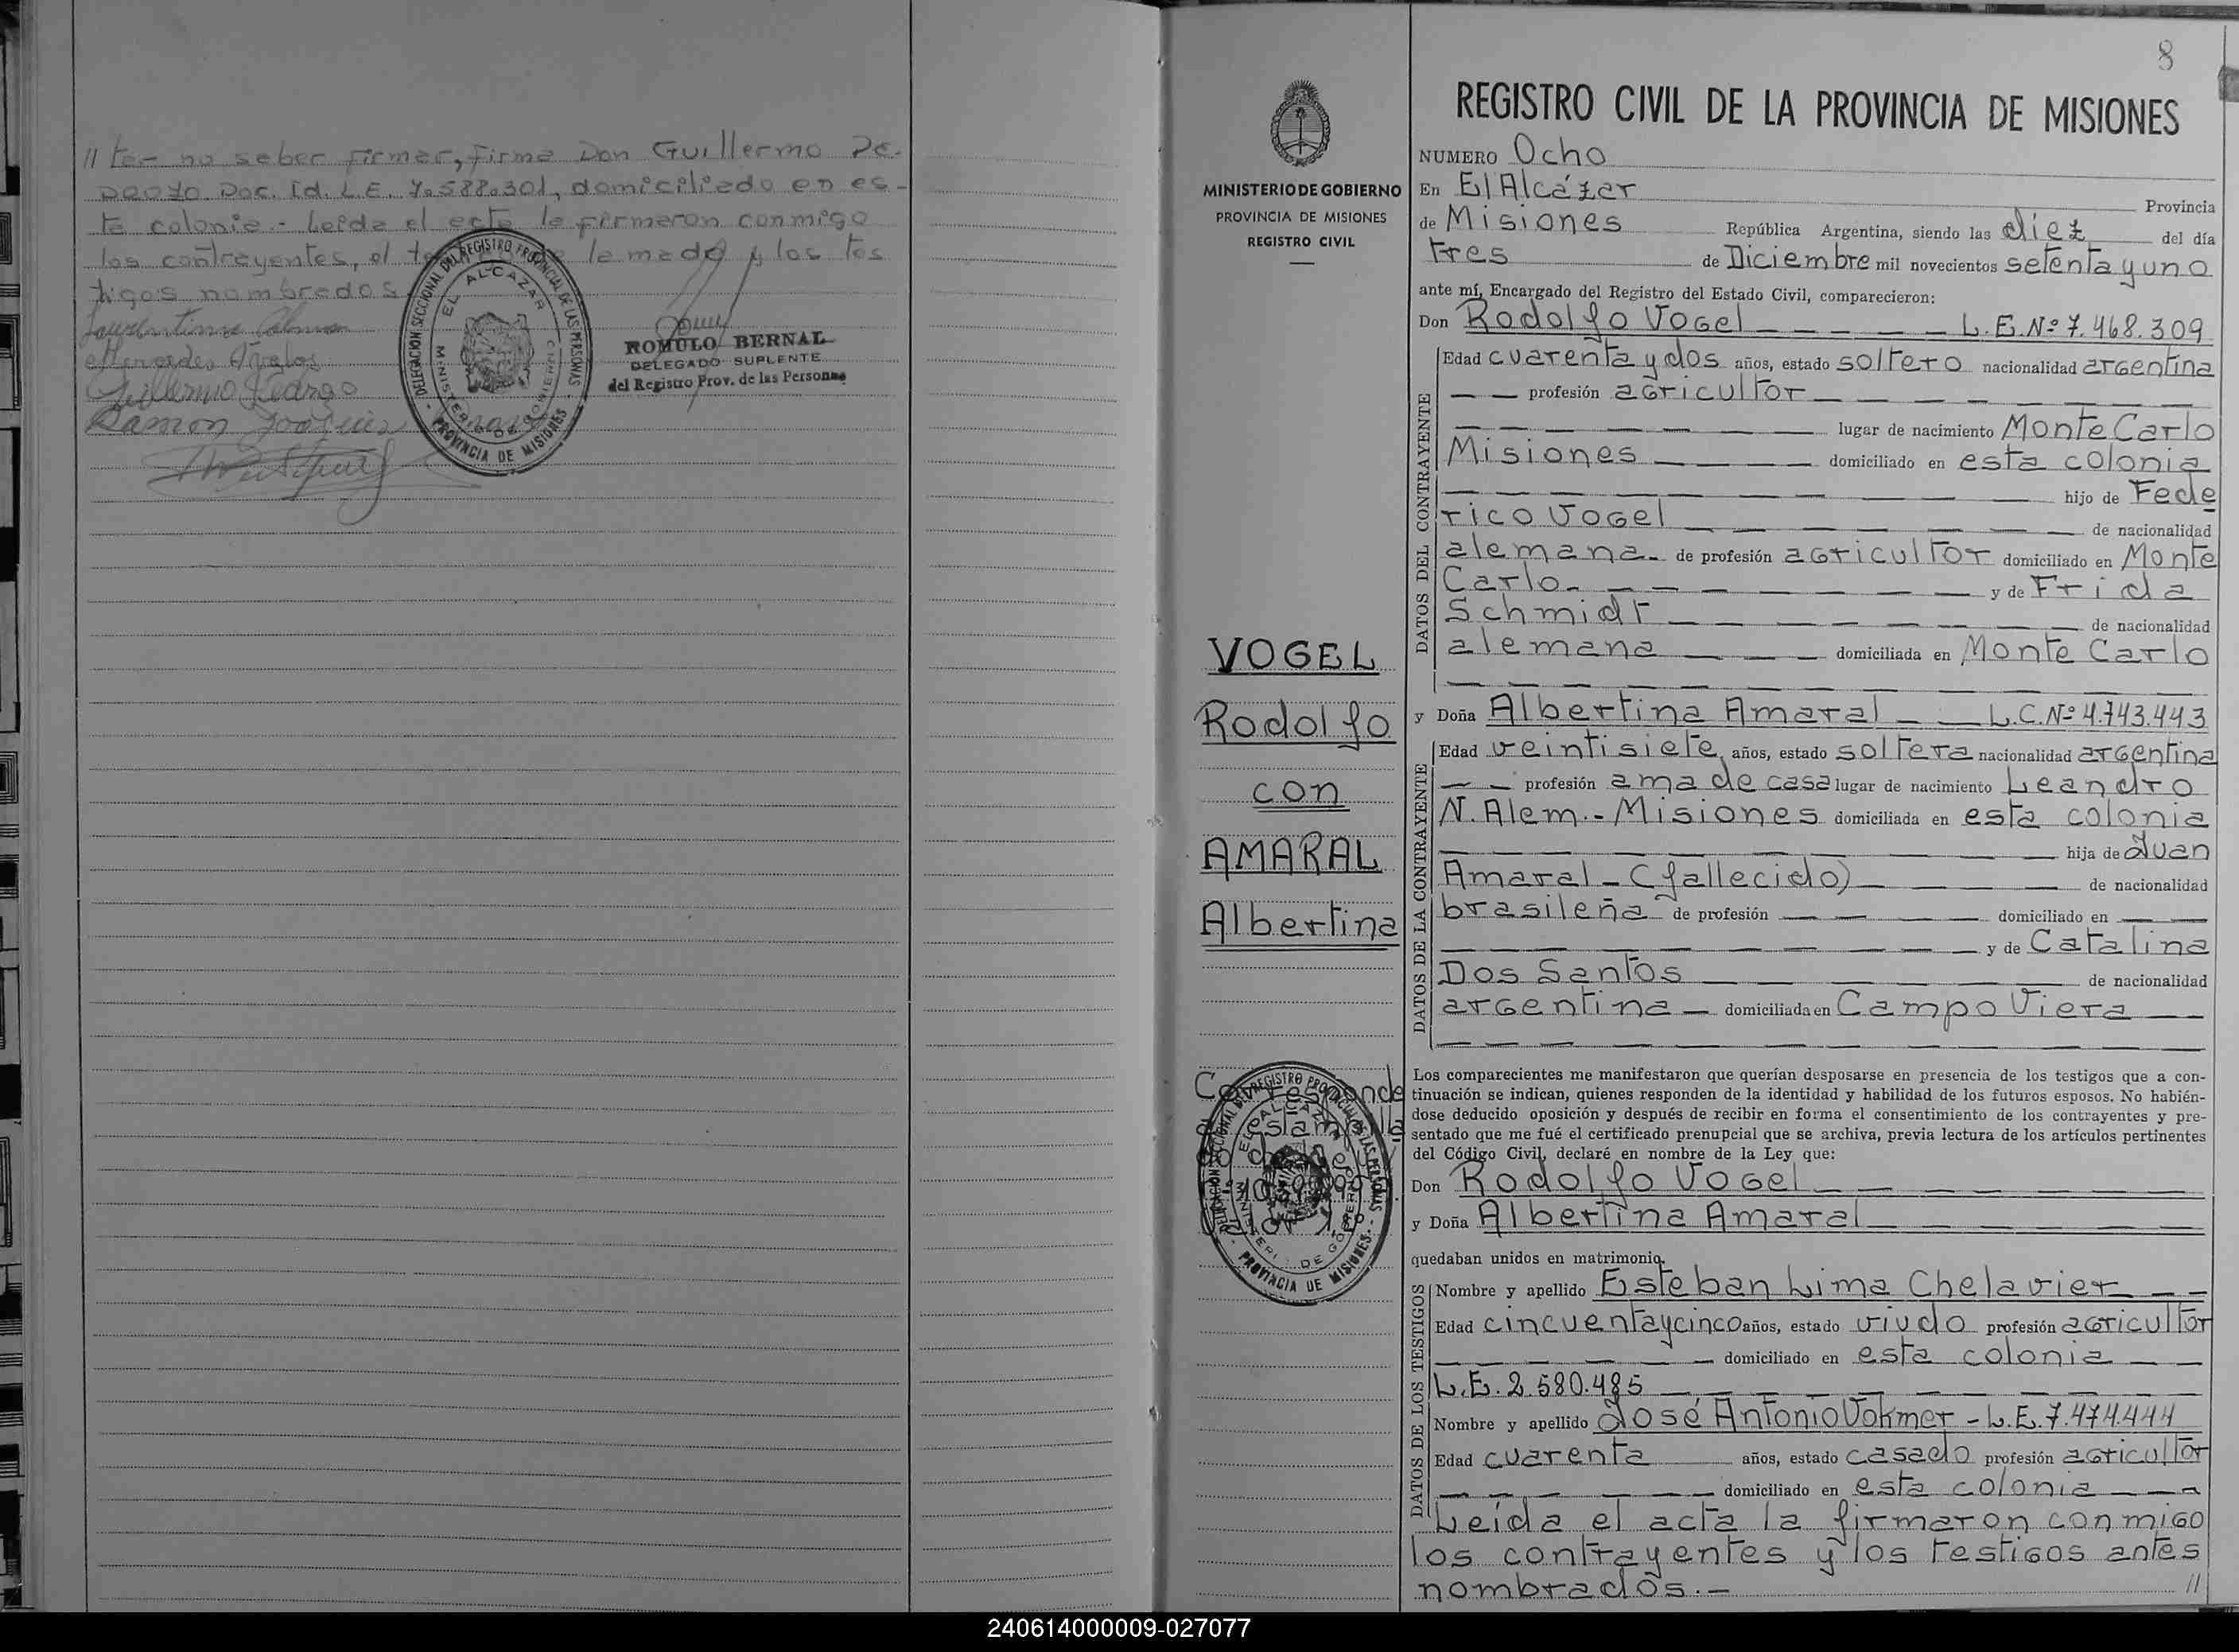 // ter no saber firmar, firma Don Guillermo Pe-
Doc. Id. L.E. 7.588.301, domiciliado en es-
ta colonia.- Leída el acta la firmaron conmigo
los contrayentes, el la mado y los tes
tigos nombrados
Mercedes
Guillermo
Ramon
DELEGACION SECCIONAL DEL REGISTRO PROVINCIAL DE LAS PERSONAS
EL ALCAZAR
MINISTERIO DE GOBIERNO
PROVINCIA DE MISIONES
ROMULO BERNAL
DELEGADO SUPLENTE
del Registro Prov. de las Personas
MINISTERIO DE GOBIERNO
PROVINCIA DE MISIONES
REGISTRO CIVIL
VOGEL
Rodolfo
con
AMARAL
Albertina
Corresponde
DELEGACION SECCIONAL DEL REGISTRO PROVINCIAL DE LAS PERSONAS
EL ALCAZAR
MINISTERIO DE GOBIERNO
PROVINCIA DE MISIONES
8
REGISTRO CIVIL DE LA PROVINCIA DE MISIONES
NUMERO Ocho
En El Alcázar Provincia
de Misiones República Argentina, siendo las diez del día
tres de Diciembre mil novecientos setenta y uno
ante mí, Encargado del Registro del Estado Civil, comparecieron:
Don Rodolfo Vogel L.E. Nº 7.468.309
DATOS DEL CONTRAYENTE
Edad cuarenta y dos años, estado soltero nacionalidad argentina
profesión agricultor
lugar de nacimiento Monte Carlo
Misiones domiciliado en esta colonia
hijo de Fede
rico Vogel de nacionalidad
alemana de profesión agricultor domiciliado en Monte
Carlo y de Frida
Schmidt de nacionalidad
alemana domiciliada en Monte Carlo
y Doña Albertina Amaral L.C. Nº 4.743.443
DATOS DE LA CONTRAYENTE
Edad veintisiete años, estado soltera nacionalidad argentina
profesión ama de casa lugar de nacimiento Leandro
N. Alem.- Misiones domiciliada en esta colonia
hija de Juan
Amaral - (fallecido) de nacionalidad
brasileña de profesión domiciliado en
y de Catalina
Dos Santos de nacionalidad
argentina domiciliada en Campo Viera
Los comparecientes me manifestaron que querían desposarse en presencia de los testigos que a con-
tinuación se indican, quienes responden de la identidad y habilidad de los futuros esposos. No habién-
dose deducido oposición y después de recibir en forma el consentimiento de los contrayentes y pre-
sentado que me fué el certificado prenupcial que se archiva, previa lectura de los artículos pertinentes
del Código Civil, declaré en nombre de la Ley que:
Don Rodolfo Vogel
y Doña Albertina Amaral
quedaban unidos en matrimonio.
DATOS DE LOS TESTIGOS
Nombre y apellido Esteban Lima Chelavier
Edad cincuenta y cinco años, estado viudo profesión agricultor
domiciliado en esta colonia
L.E. 2.580.485
Nombre y apellido José Antonio Vokmer - L.E. 7.474.444
Edad cuarenta años, estado casado profesión agricultor
domiciliado en esta colonia
Leída el acta la firmaron conmigo
los contrayentes y los testigos antes
nombrados.- //
240614000009-027077